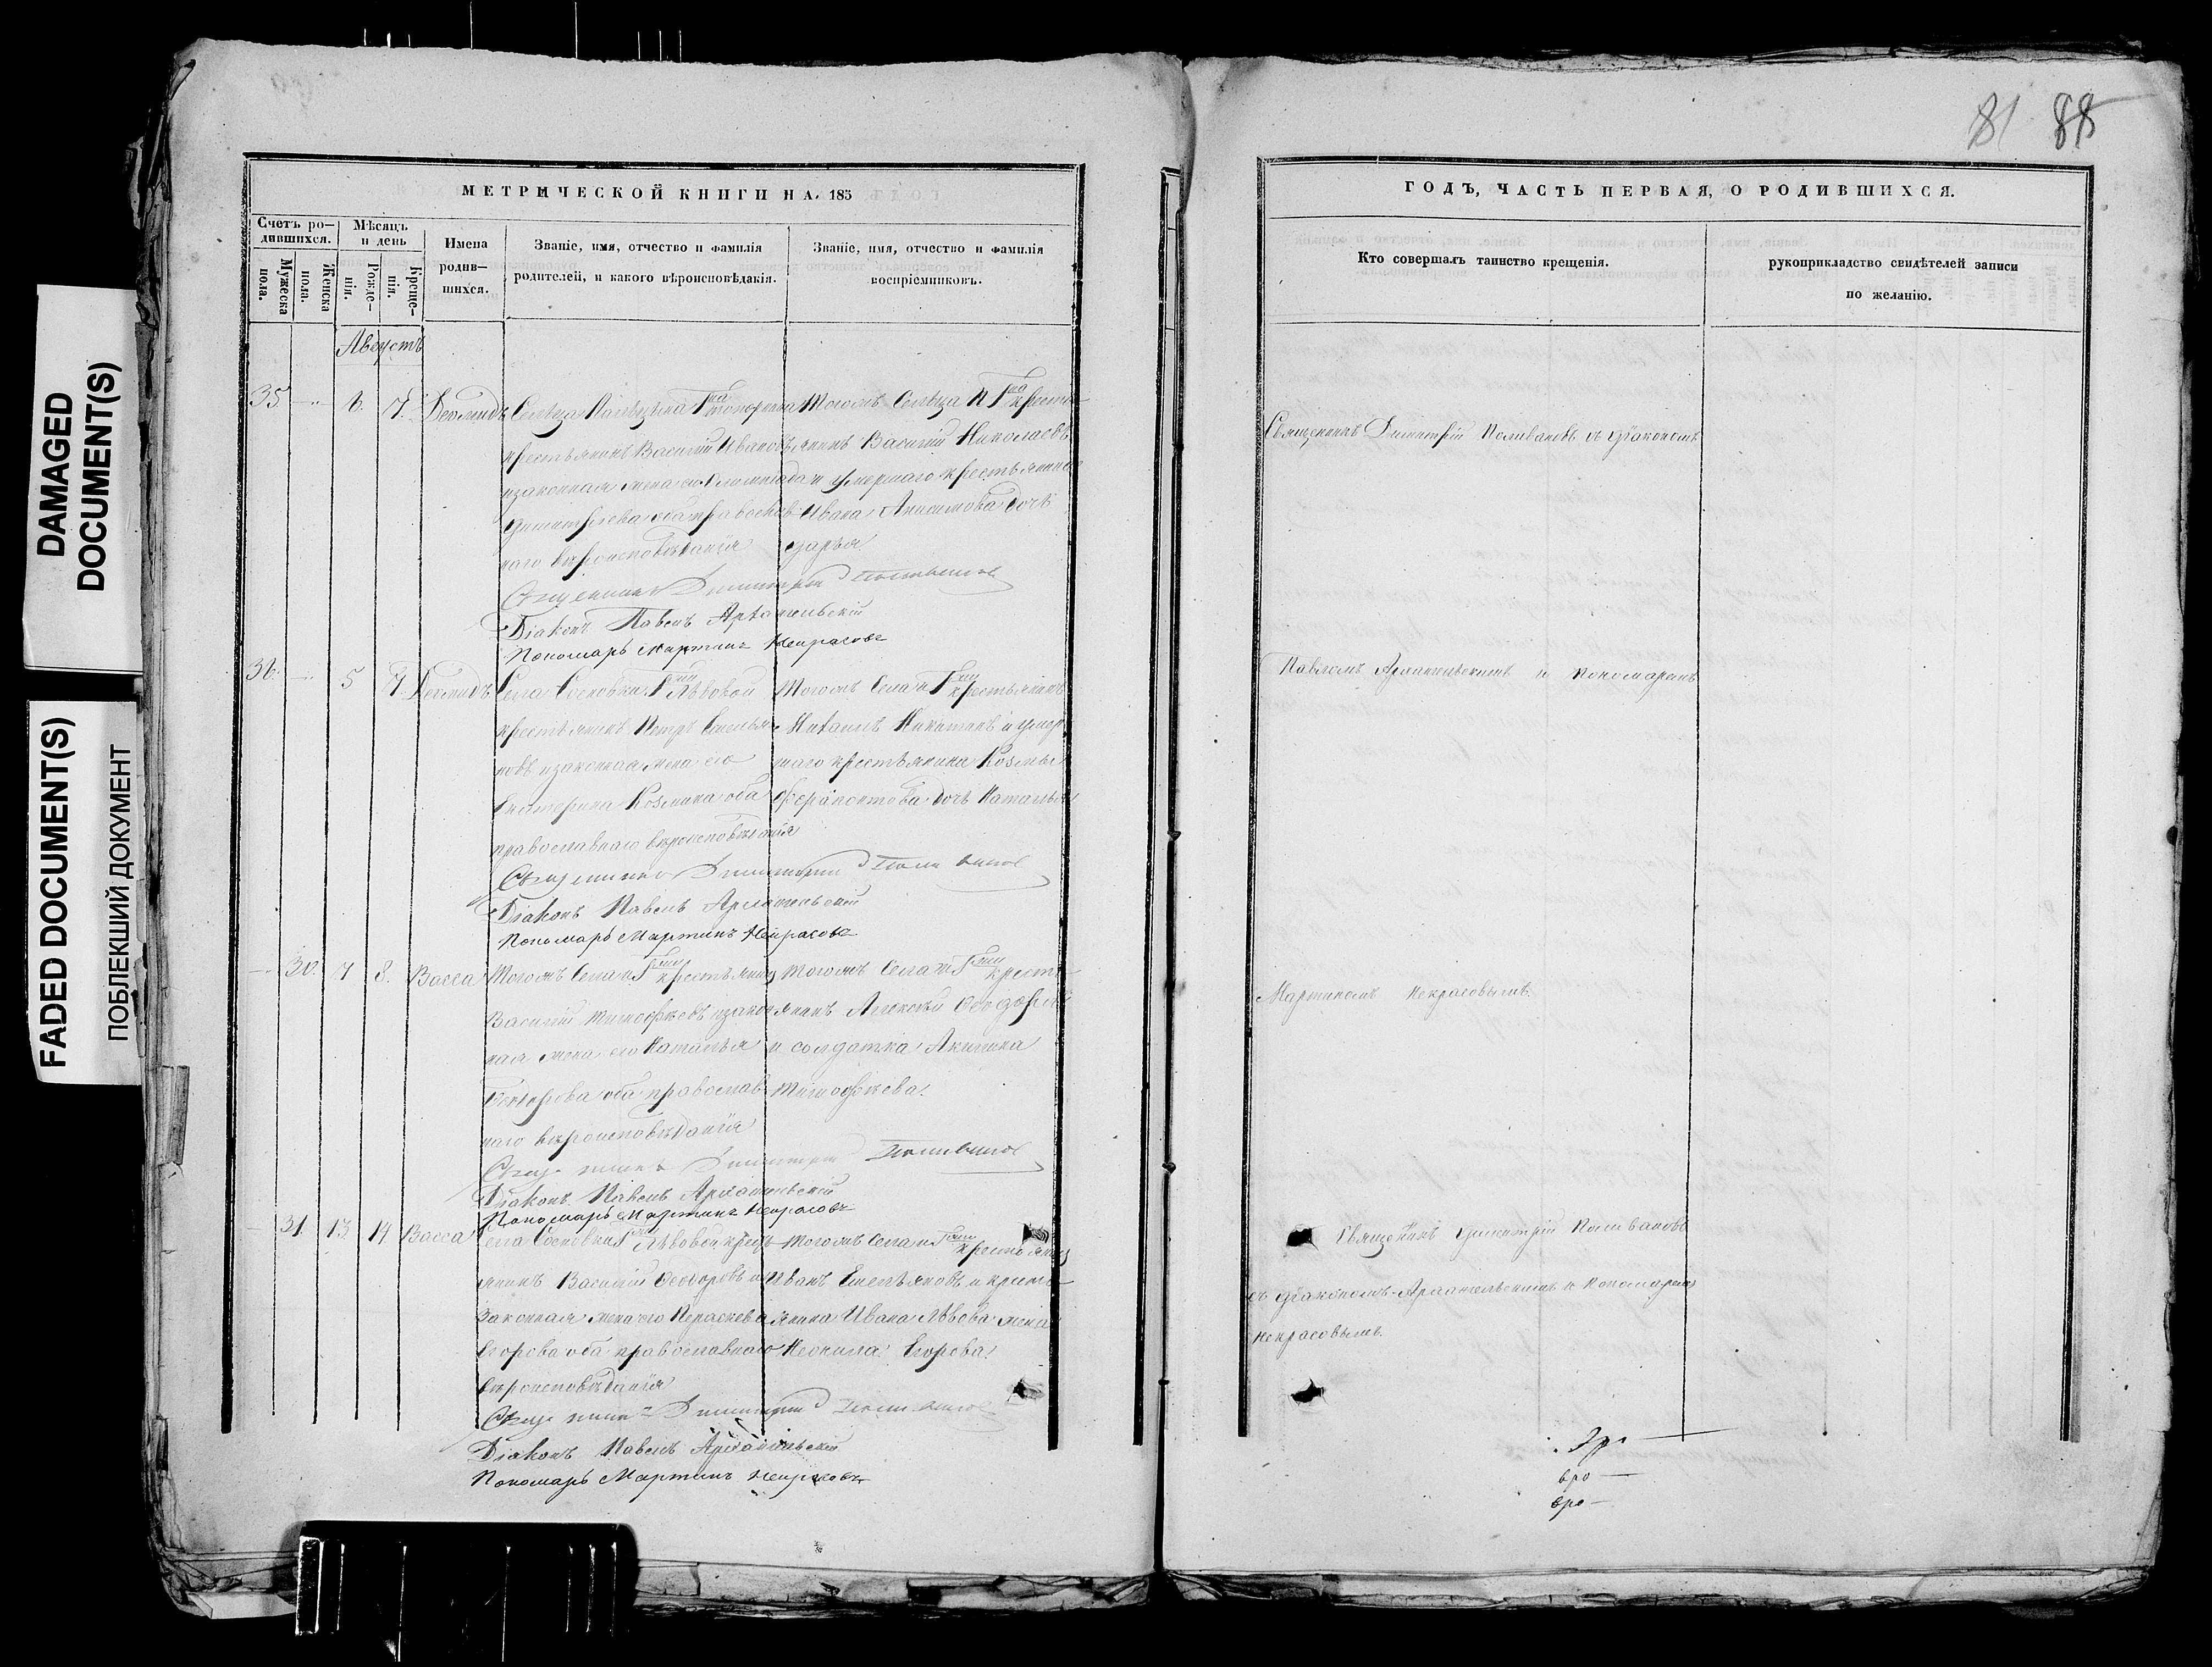 DAMAGED
DOCUMENT(S)
FADED DOCUMENT(S)
ПОБЛЕКШИЙ ДОКУМЕНТ
81 88
МЕТРИЧЕСКОЙ КНИГИ НА 185
Счетъ ро–
дившихся.
Мѣсяцъ
и день
Имена
родив–
шихся.
Званіе, имя, отчество и фамилія
родителей, и какого вѣроисповѣданія.
Званіе, имя, отчество и фамилія
воспріемниковъ.
Мужеска
пола.
Женска
пола.
Рожде–
нія.
Креще–
нія.
Августъ
35. 6. 7.
крестьянинъ Василій Ивановъ
изаконная жена его
ного вѣроисповѣданія
янинъ Василій Николаевъ
и умершаго крестьянина
Ивана Анисимова дочь
Дарья
Священникъ Димитрій Поливановъ
Діаконъ Павелъ Архангельскій
Пономарь Мартинъ Некрасовъ
36. 5 7
Села Сосновки Львовой
крестьянинъ Петръ Емелья–
новъ изаконная жена его
Екатерина Козмина оба
православнаго вѣроисповѣданія
тогожъ Села и крестьянинъ
Михаилъ Никитинъ и умер–
шаго крестьянина Козмы
Ферапонтова дочь Наталья
Священникъ Димитрій Поливановъ
Діаконъ Павелъ Архангельскій
Пономарь Мартинъ Некрасовъ
30. 7 8. Васса
тогожъ Села и крестьянинъ
Василій Тимофѣевъ изакон
ная жена его Наталья
оба православ
наго вѣроисповѣданія
тогожъ Села и крестъ
янинъ Алексѣй
и солдатка Акилина
Тимофѣева.
Священникъ Димитрій Поливановъ
Діаконъ Павелъ Архангельскій
Пономарь Мартинъ Некрасовъ
31. 13 14 Васса
Села Сосновки Львовой крест
янинъ Василій Феодоровъ и
законная жена его Параскева
Егорова оба православнаго
вѣроисповѣданія
тогожъ Села и крестьянинъ
Иванъ Емельяновъ и кресть–
янина Ивана Львова жена
Неонила Егорова.
Священникъ Димитрій Поливановъ
Діаконъ Павелъ Архангельскій
Пономарь Мартинъ Некрасовъ
ГОДЪ, ЧАСТЬ ПЕРВАЯ, О РОДИВШИХСЯ.
Кто совершалъ таинство крещенія.
рукоприкладство свидѣтелей записи
по желанію.
Священникъ Димитрій Поливановъ съ діакономъ
Павломъ Архангельскимъ и пономаремъ
Мартиномъ Некрасовымъ.
Священникъ Димитрій Поливановъ
съ діакономъ Архангельскимъ и пономаремъ
Некрасовымъ.